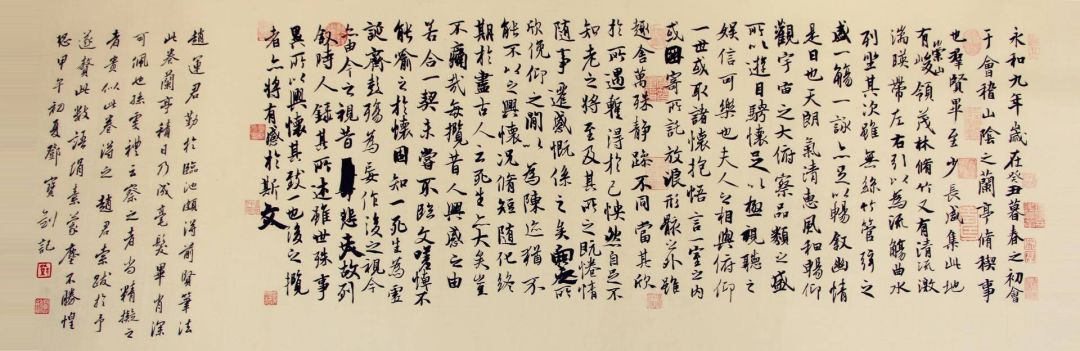 永和九年歲在癸丑暮春之初會
于會稽山陰之蘭亭脩禊事
也群賢畢至少長咸集此地
有崇山峻領茂林脩竹又有清流激
湍暎帶左右引以為流觴曲水
列坐其次雖無絲竹管弦之
盛一觴一詠亦足以暢叙幽情
是日也天朗氣清惠風和暢仰
觀宇宙之大俯察品類之盛
所以遊目騁懷足以極視聽之
娛信可樂也夫人之相與俯仰
一世或取諸懷抱悟言一室之內
或因寄所託放浪形骸之外雖
趣舍萬殊靜躁不同當其欣
於所遇蹔得於己怏然自足不
知老之將至及其所之既惓情
隨事遷感慨係之矣向之所
欣俛仰之閒以為陳迹猶不
能不以之興懷況脩短隨化終
期於盡古人云死生亦大矣豈
不痛哉每攬昔人興感之由
若合一契未嘗不臨文嗟悼不
能喻之於懷固知一死生為虛
誕齊彭殤為妄作後之視今
亦由今之視昔悲夫故列
叙時人錄其所述雖世殊事
異所以興懷其致一也後之攬
者亦將有感於斯文
趙運君勤於臨池頗得前賢筆法
此卷蘭亭積日乃成毫髮畢肖深
可佩也孫雲禮云察之者尚精擬之
者貴似此卷得之趙君索跋於予
遂贅此數語絹素蒙塵不勝惶
恐甲午初夏鄧寶劍記